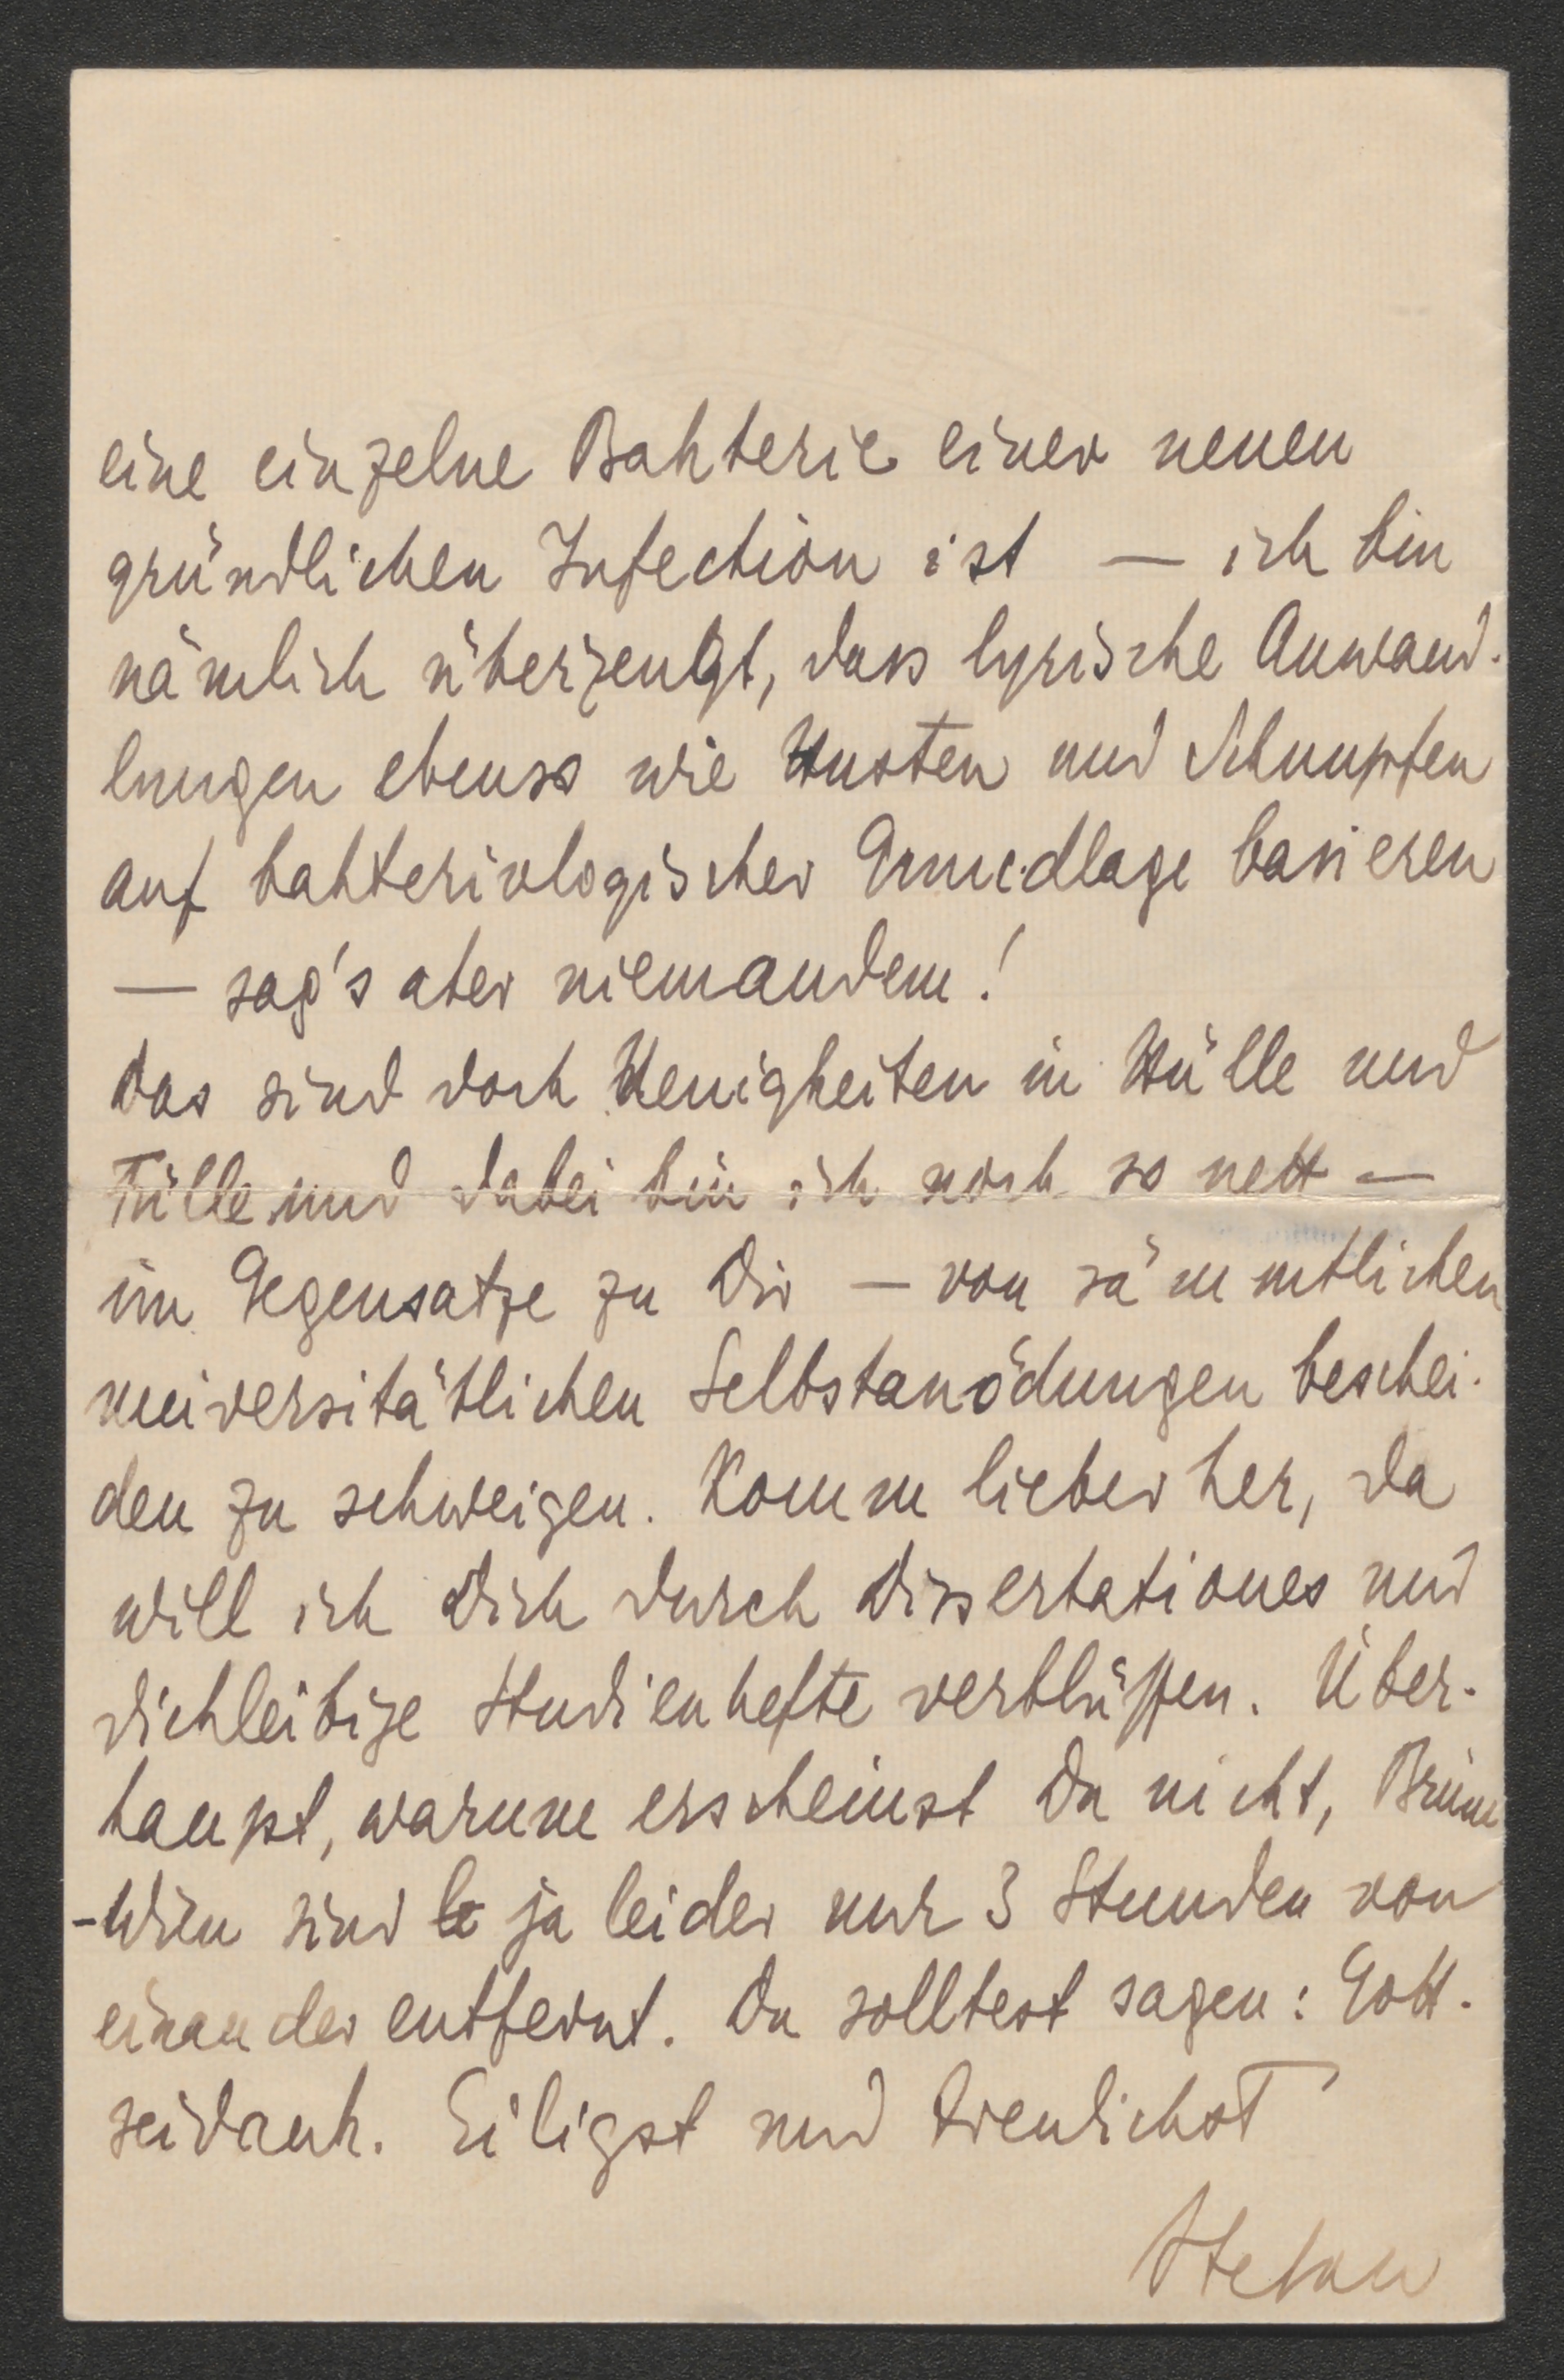 eine einzelne Bakterie einer neuen
gründlichen Infection ist — ich bin
nämlich überzeugt, dass lyrische Anwand-
lungen ebenso wie Husten und Schnupfen
auf bakteriologischer Grundlage basieren
— sag's aber niemandem!
Das sind doch Neuigkeiten in Hülle und
Fülle und dabei bin ich noch so nett —
im Gegensatze zu Dir — von sämmtlichen
universitätlichen Selbstanödungen beschei-
den zu schweigen. Komm lieber her, da
will ich Dich durch Dissertationes und
dickleibige Studienhefte verblüffen. Über-
haupt, warum erscheinst Du nicht, Brünn
-Wien sind le ja leider nur 3 Stunden von
einander entfernt. Du solltest sagen: Gott-
seidank. Eiligst und treulichst
Stefan